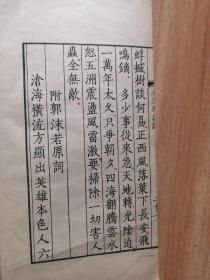 蜉撼樹談何易正西風落葉下長安飛
鳴鏑 多少事從來急天地轉光陰迫
一萬年太久只爭朝夕四海翻騰雲水
怒五洲震盪風雷激要掃除一切害人
蟲全無敵
附郭沫若原詞
滄海橫流方顯出英雄本色人六